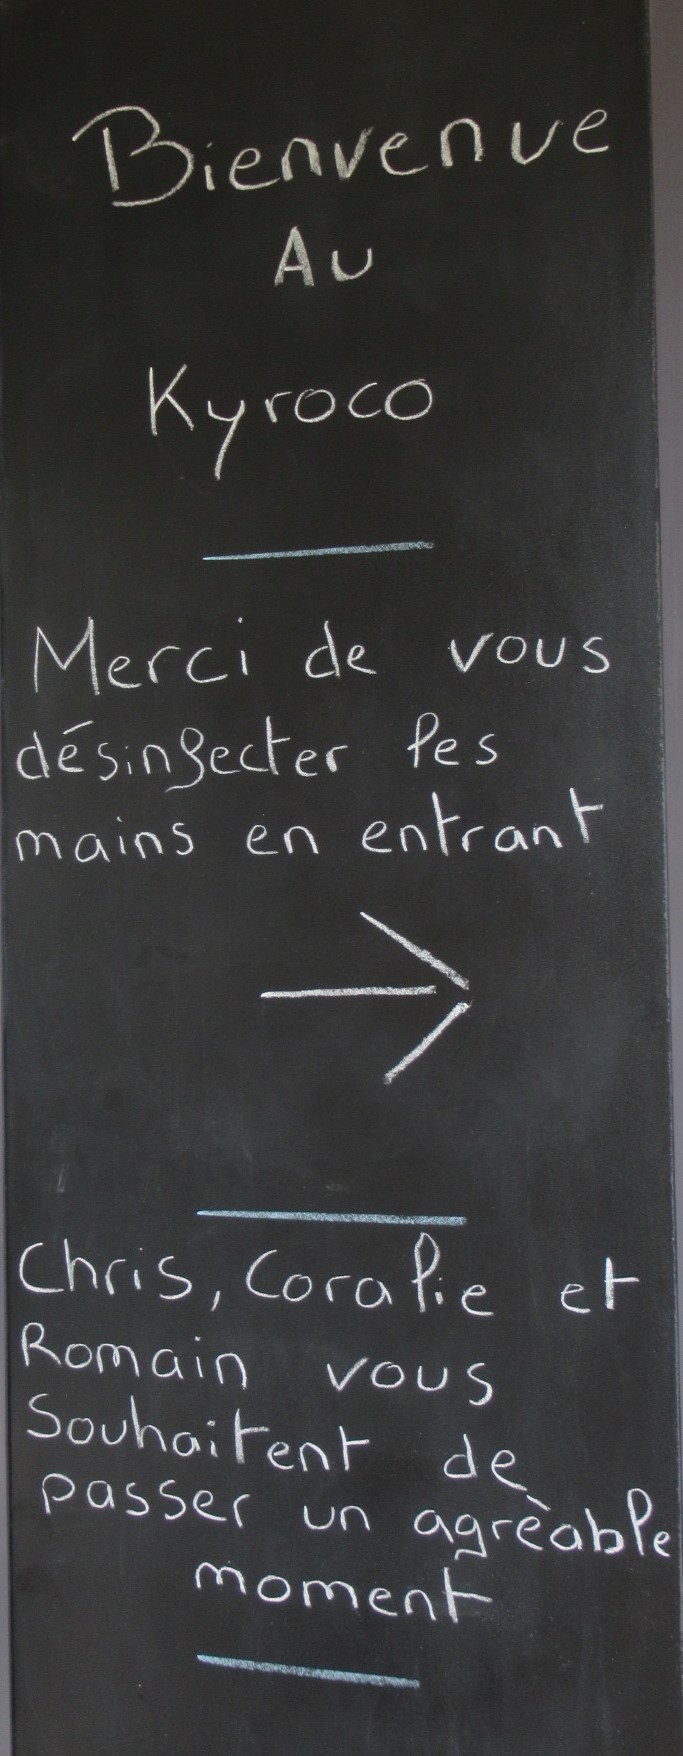 Bienvenue
Au
Kyroco
Merci de vous
désinfecter les
mains en entrant
Chris, Coralie et
Romain vous
Souhaitent de
passer un agrèable
moment